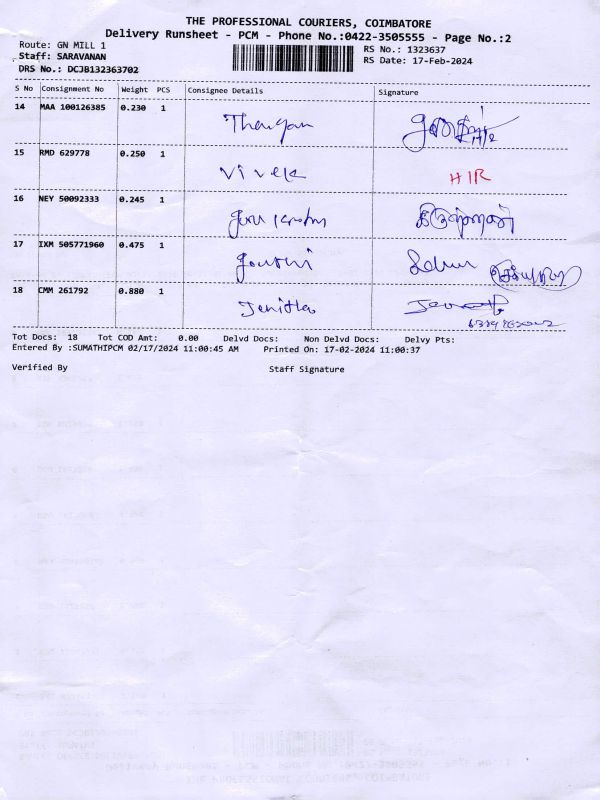 THE PROFESSIONAL COURIERS, COIMBATORE
Delivery Runsheet - PCM - Phone No.:0422-3505555 - Page No.:2
Route: GN MILL 1 RS No.: 1323637
Staff: SARAVANAN RS Date: 17-Feb-2024
DRS No.: DCJB132363702
S No Consignment No Weight PCS Consignee Details Signature
14 MAA 100126385 0.230 1
15 RMD 629778 0.250 1 Vivek HIR
16 NEY 50092333 0.245 1
17 IXM 505771960 0.475 1 Gowthri
18 CMM 261792 0.880 1 Jenitta
Tot Docs: 18 Tot COD Amt: 0.00 Delvd Docs: Non Delvd Docs: Delvy Pts:
Entered By :SUMATHIPCM 02/17/2024 11:00:45 AM Printed On: 17-02-2024 11:00:37
Verified By Staff Signature